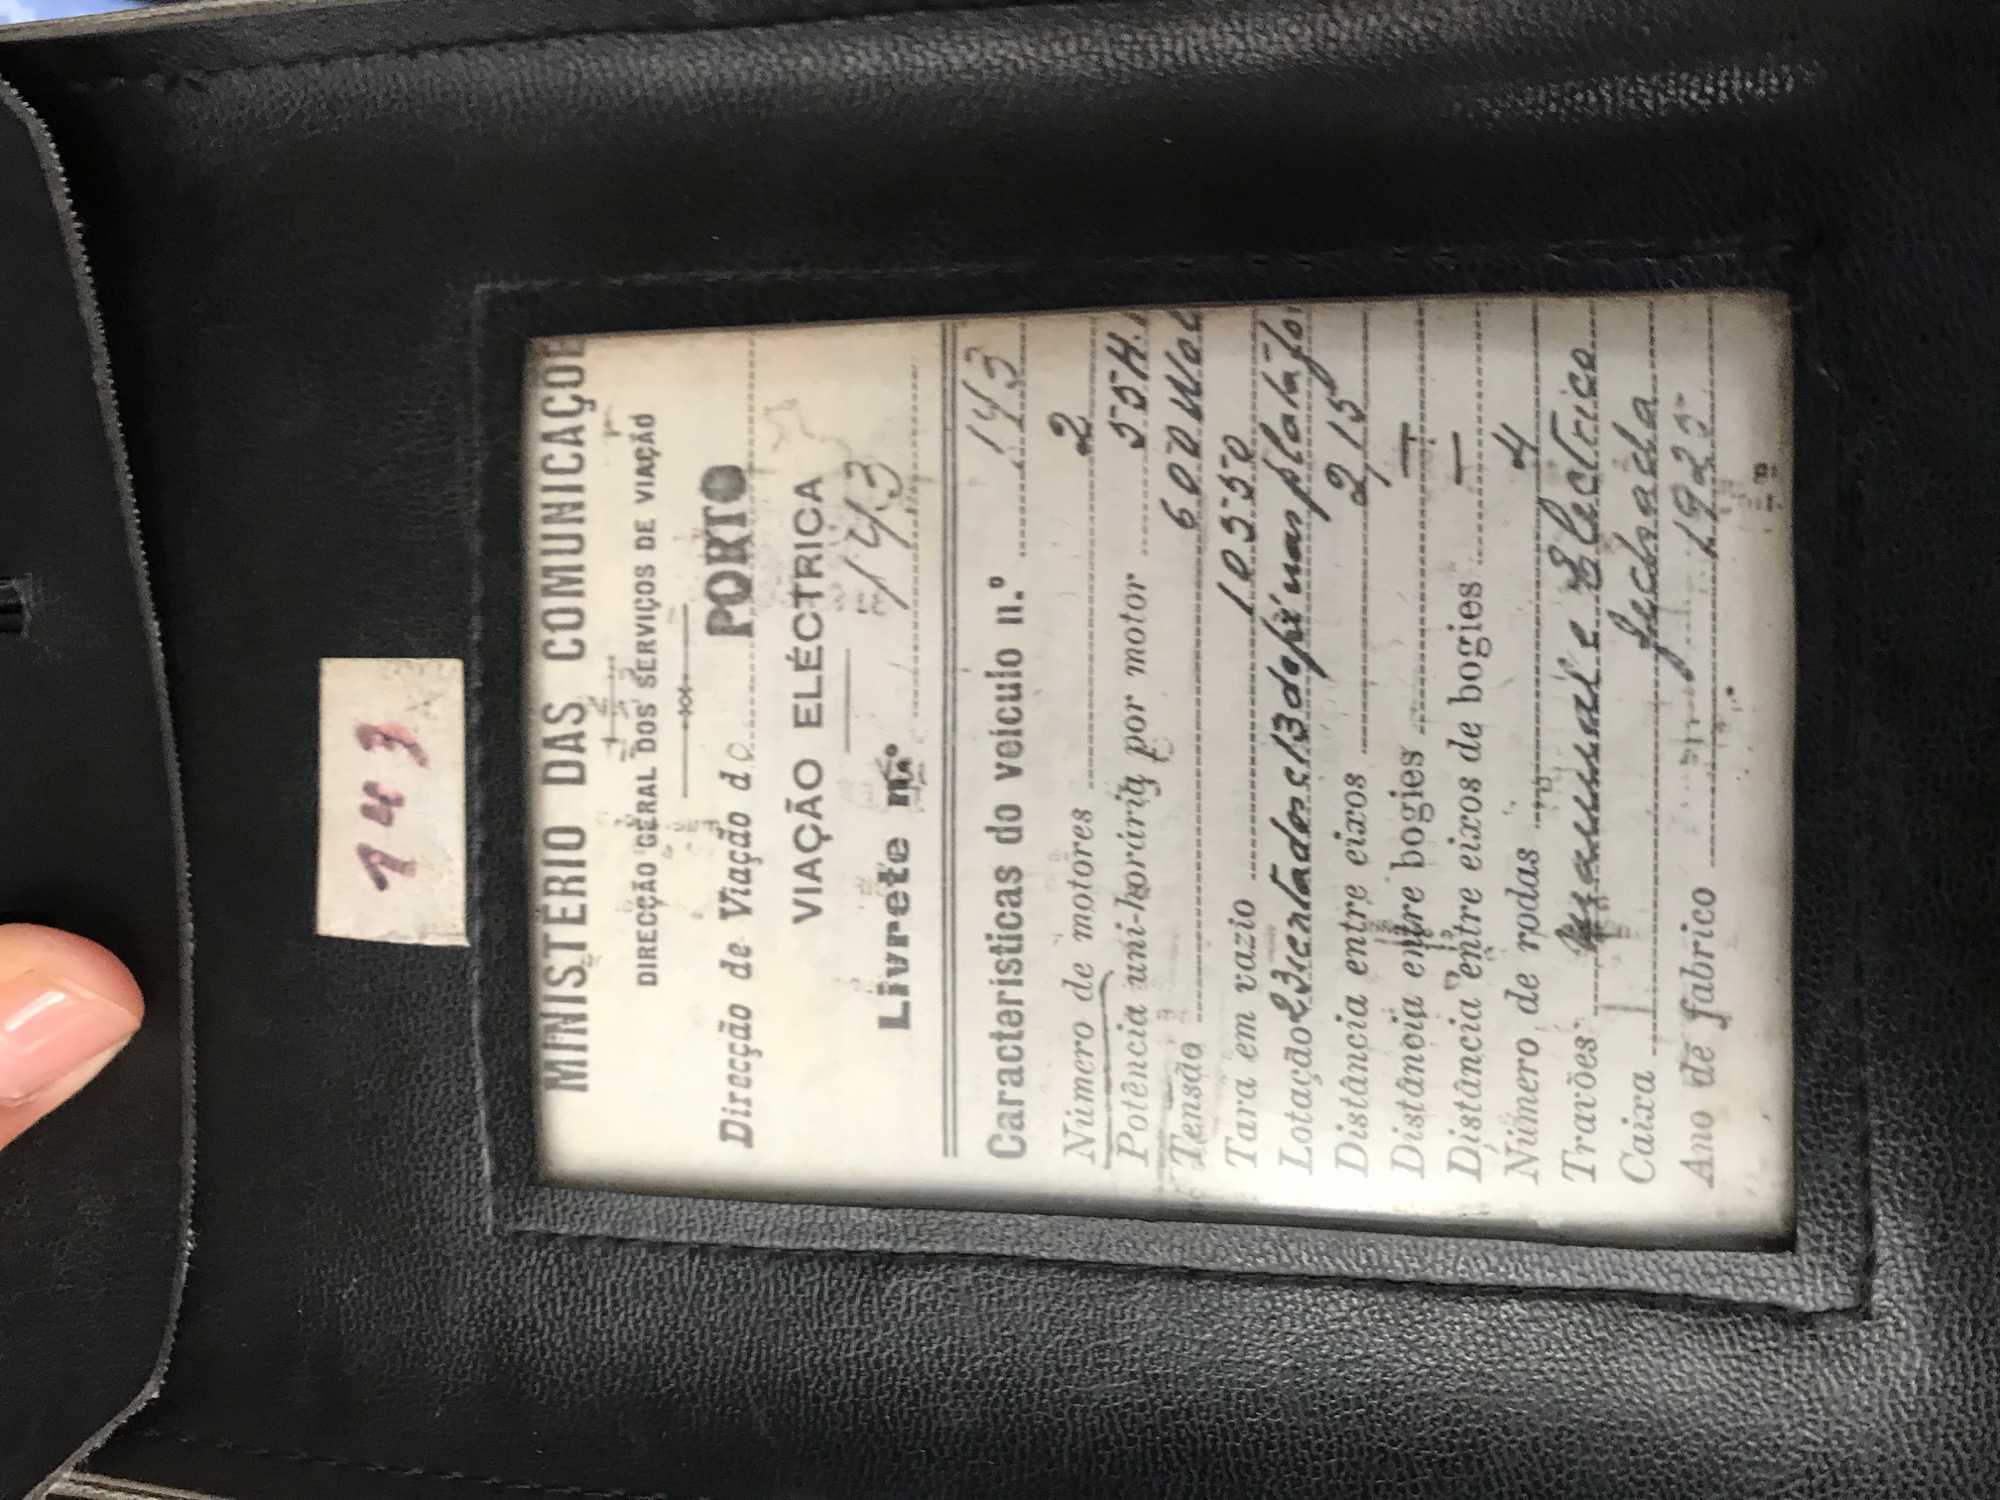 143
MINISTÉRIO DAS COMUNICAÇÕE
DIRECÇÃO GERAL DOS SERVIÇOS DE VIAÇÃO
Direcção de Viação do PORTO
VIAÇÃO ELÉCTRICA
Livrete n.º 143
Características do veículo n.º 143
Número de motores 2
Potência uni-horária por motor 55 H.
Tensão 600 Vol
Tara em vazio 10550
Lotação 23 sentados e 13 de pé nas platafor
Distância entre eixos 2,15
Distância entre bogies —
Distância entre eixos de bogies —
Número de rodas 4
Travões manual e Electrico
Caixa fechada
Ano de fabrico 1925